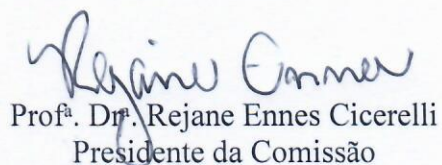 Rejane Ennes
Profª. Drª. Rejane Ennes Cicerelli
Presidente da Comissão